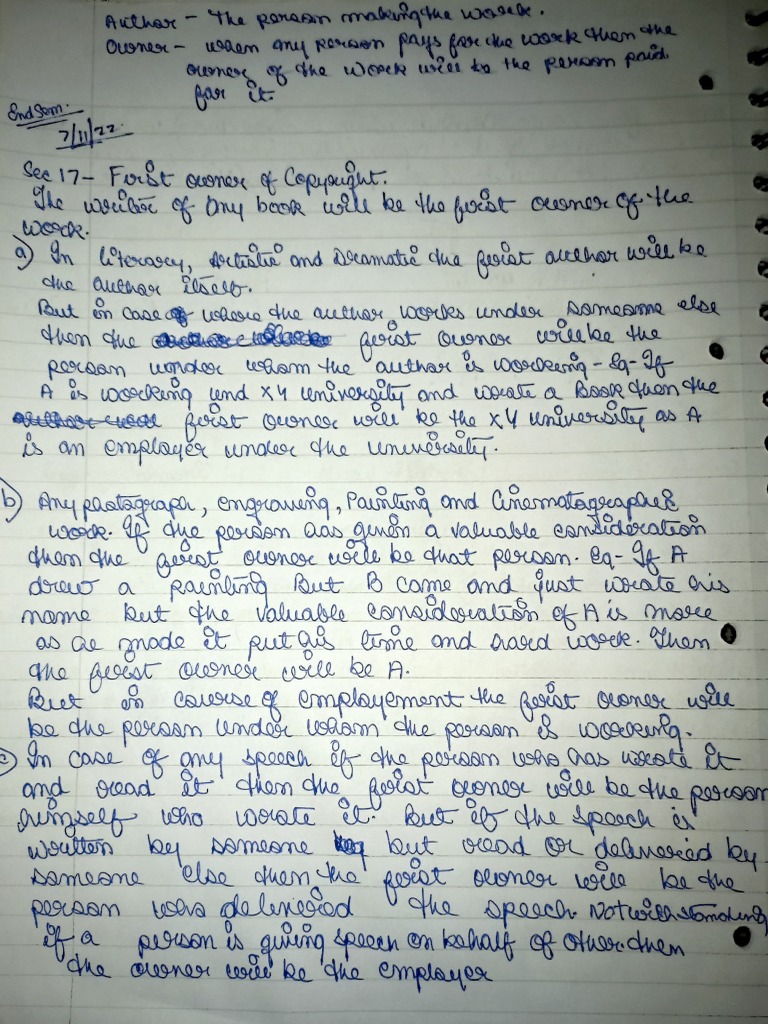 Author - The person making the work.
Owner - when any person pays for the work then the
owner of the work will be the person paid
for it.
End Sem.
7/11/22.
Sec 17 - First owner of Copyright.
The writer of any book will be the first owner of the
work.
a) In literary, Artistic and Dramatic the first author will be
the author itself.
But in case where the author works under someone else
then the first owner will be the
person under whom the author is working - Eg - If
A is working und XY university and wrote a Book then the
first owner will be the XY university as A
is an employer under the university.
b) Any photograph, engraving, Painting and Cinematographic
work. If the person has given a valuable consideration
then the first owner will be that person. Eg - If A
drew a painting But B came and just wrote his
name but the valuable consideration of A is more
as he made it put his time and hard work. Then
the first owner will be A.
But in course of employement the first owner will
be the person under whom the person is working.
c) In case of any speech if the person who has wrote it
and read it then the first owner will be the person
himself who wrote it. But if the speech is
written by someone but read or delivered by
someone else then the first owner will be the
person who delivered the speech. Notwithstanding
if a person is giving speech on behalf of other then
the owner will be the employer